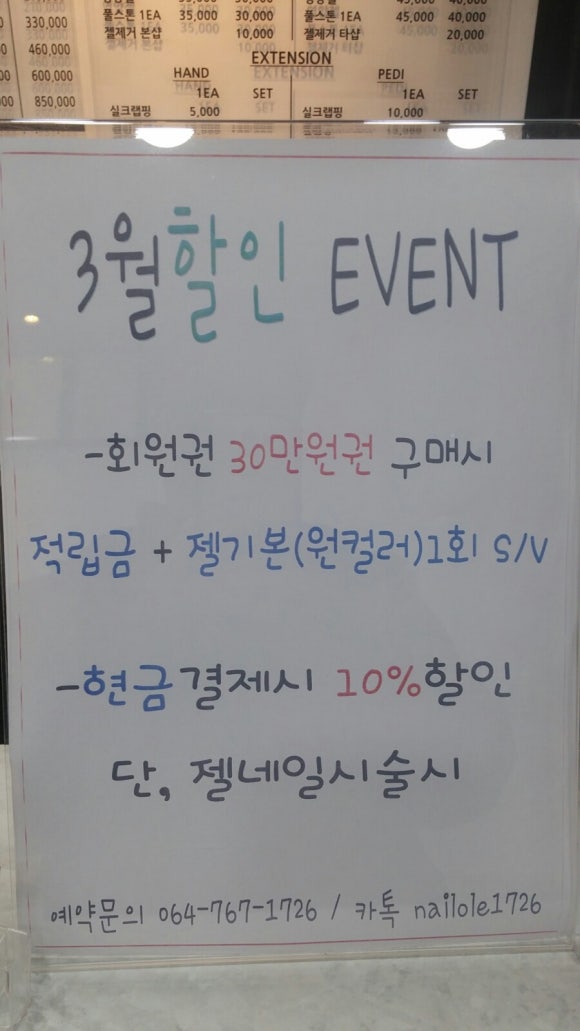 330,000
460,000
600,000
850,000
풀스톤 1EA 35,000 30,000
젤제거 본샵 10,000
풀스톤 1EA 45,000 40,000
젤제거 타샵 20,000
EXTENSION
HAND
1EA SET
실크랩핑 5,000
PEDI
1EA SET
실크랩핑 10,000
3월할인 EVENT
-회원권 30만원권 구매시
적립금 + 젤기본(원컬러)1회 S/V
-현금결제시 10%할인
단, 젤네일시술시
예약문의 064-767-1726 / 카톡 nailole1726